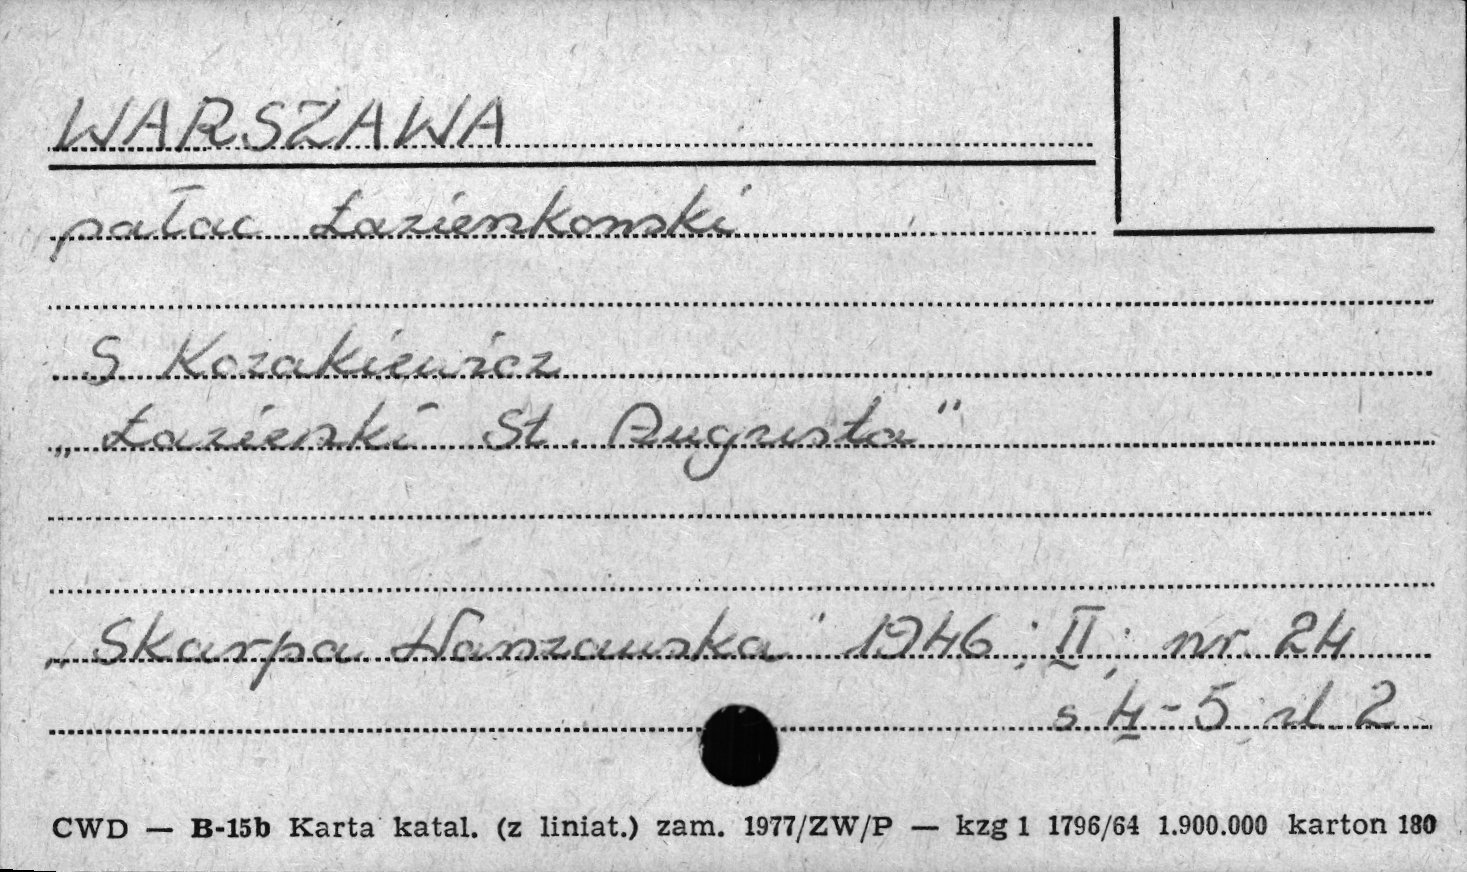 WARSZAWA
pałac Łazienkowski
S. Kozakiewicz
„Łazienki St. Augusta"
„Skarpa Warszawska" 1946; II; nr 24
s 4-5 il. 2
CWD — B-15b Karta katal. (z liniat.) zam. 1977/ZW/P — kzg 1 1796/64 1.900.000 karton 180